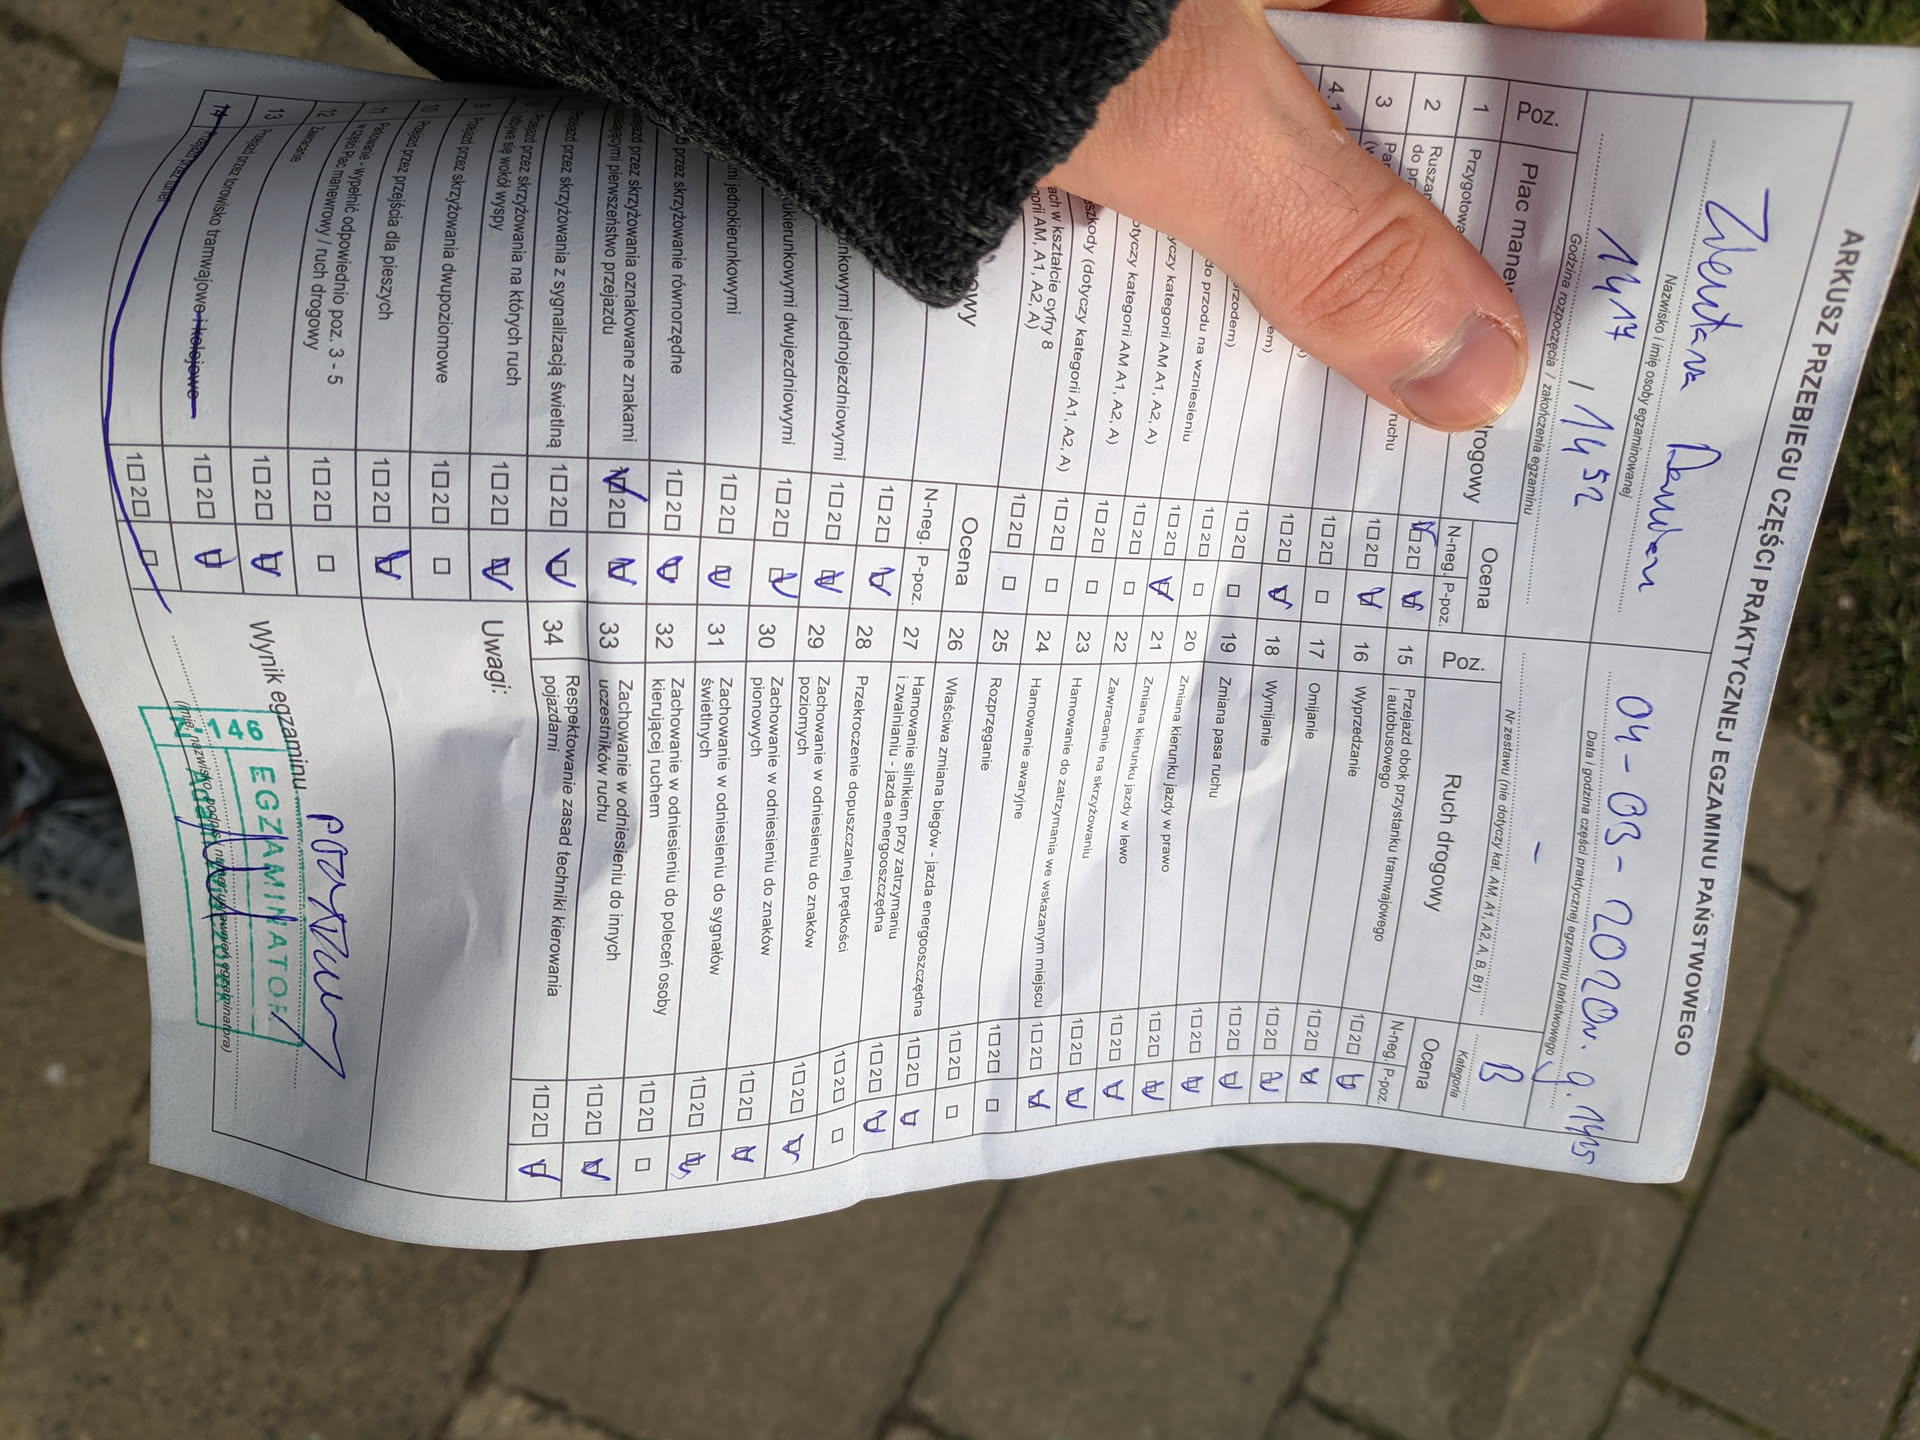 ARKUSZ PRZEBIEGU CZĘŚCI PRAKTYCZNEJ EGZAMINU PAŃSTWOWEGO
04-03-2020r. g.
Nazwisko i imię osoby egzaminowanej
Data i godzina części praktycznej egzaminu państwowego
14,17 / 14,52
-
B
Godzina rozpoczęcia / zakończenia egzaminu
Nr zestawu (nie dotyczy kat. AM, A1, A2, A, B, B1)
Kategoria
Poz.
Plac
drogowy
Ocena
N-neg. P-poz.
1
2
1□2□
3
ruchu
1□2□
4.1
1□2□
1□2□
1□2□
do przodu na wzniesieniu
1□2□
kategorii AM A1, A2, A)
1□2□
dotyczy kategorii AM A1, A2, A)
1□2□
(dotyczy kategorii A1, A2, A)
1□2□
w kształcie cyfry 8
AM, A1, A2, A)
1□2□
1□2□
Ocena
N-neg. P-poz.
jednojezdniowymi
1□2□
dwukierunkowymi dwujezdniowymi
1□2□
jednokierunkowymi
1□2□
przez skrzyżowanie równorzędne
1□2□
przez skrzyżowania oznakowane znakami
pierwszeństwo przejazdu
1□2□
przez skrzyżowania z sygnalizacją świetlną
1□2□
przez skrzyżowania na których ruch
odbywa się wokół wyspy
1□2□
9
Przejazd przez skrzyżowania dwupoziomowe
1□2□
10
Przejazd przez przejścia dla pieszych
1□2□
11
Parkowanie - wypełnić odpowiednio poz. 3 - 5
części plac manewrowy / ruch drogowy
1□2□
12
Zawracanie
1□2□
13
Przejazd przez torowisko tramwajowe i kolejowe
1□2□
14
Przejazd przez tunel
1□2□
Poz.
Ruch drogowy
Ocena
N-neg. P-poz.
15
Przejazd obok przystanku tramwajowego
i autobusowego
1□2□
16
Wyprzedzanie
1□2□
17
Omijanie
1□2□
18
Wymijanie
1□2□
19
Zmiana pasa ruchu
1□2□
20
Zmiana kierunku jazdy w prawo
1□2□
21
Zmiana kierunku jazdy w lewo
1□2□
22
Zawracanie na skrzyżowaniu
1□2□
23
Hamowanie do zatrzymania we wskazanym miejscu
1□2□
24
Hamowanie awaryjne
1□2□
25
Rozprzęganie
1□2□
26
Właściwa zmiana biegów - jazda energooszczędna
1□2□
27
Hamowanie silnikiem przy zatrzymaniu
i zwalnianiu - jazda energooszczędna
1□2□
28
Przekroczenie dopuszczalnej prędkości
1□2□
29
Zachowanie w odniesieniu do znaków
poziomych
1□2□
30
Zachowanie w odniesieniu do znaków
pionowych
1□2□
31
Zachowanie w odniesieniu do sygnałów
świetlnych
1□2□
32
Zachowanie w odniesieniu do poleceń osoby
kierującej ruchem
1□2□
33
Zachowanie w odniesieniu do innych
uczestników ruchu
1□2□
34
Respektowanie zasad techniki kierowania
pojazdami
1□2□
Uwagi:
Wynik egzaminu
146
EGZAMINATOR